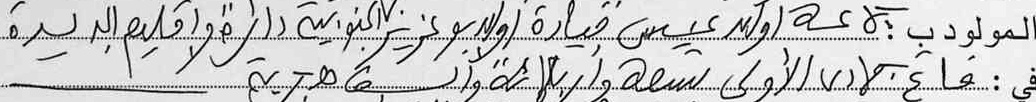 المولود ب: جماعة اولاد عيسى قيادة اولاد بوعزيز الجنوبية دائرة واقليم الجديدة
في: فاتح جمادى الأولى تسعة وأربعمائة وألف هجرية